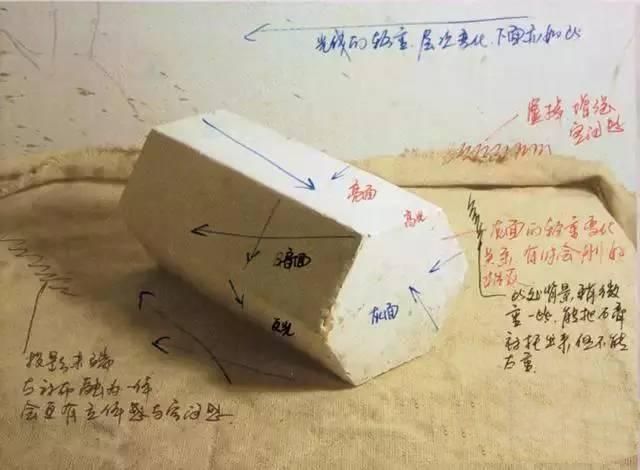 光线的轻重.层次变化.下面亦如此
虚掉 增强
空间感
亮面
高光
灰面的轻重变化
关系,有时会削弱
暗面
反光
灰面
此处背景,稍微
重一些,能把石膏
衬托出来,但不能
太重.
投影末端
与衬布融为一体
会更有立体感与空间感.